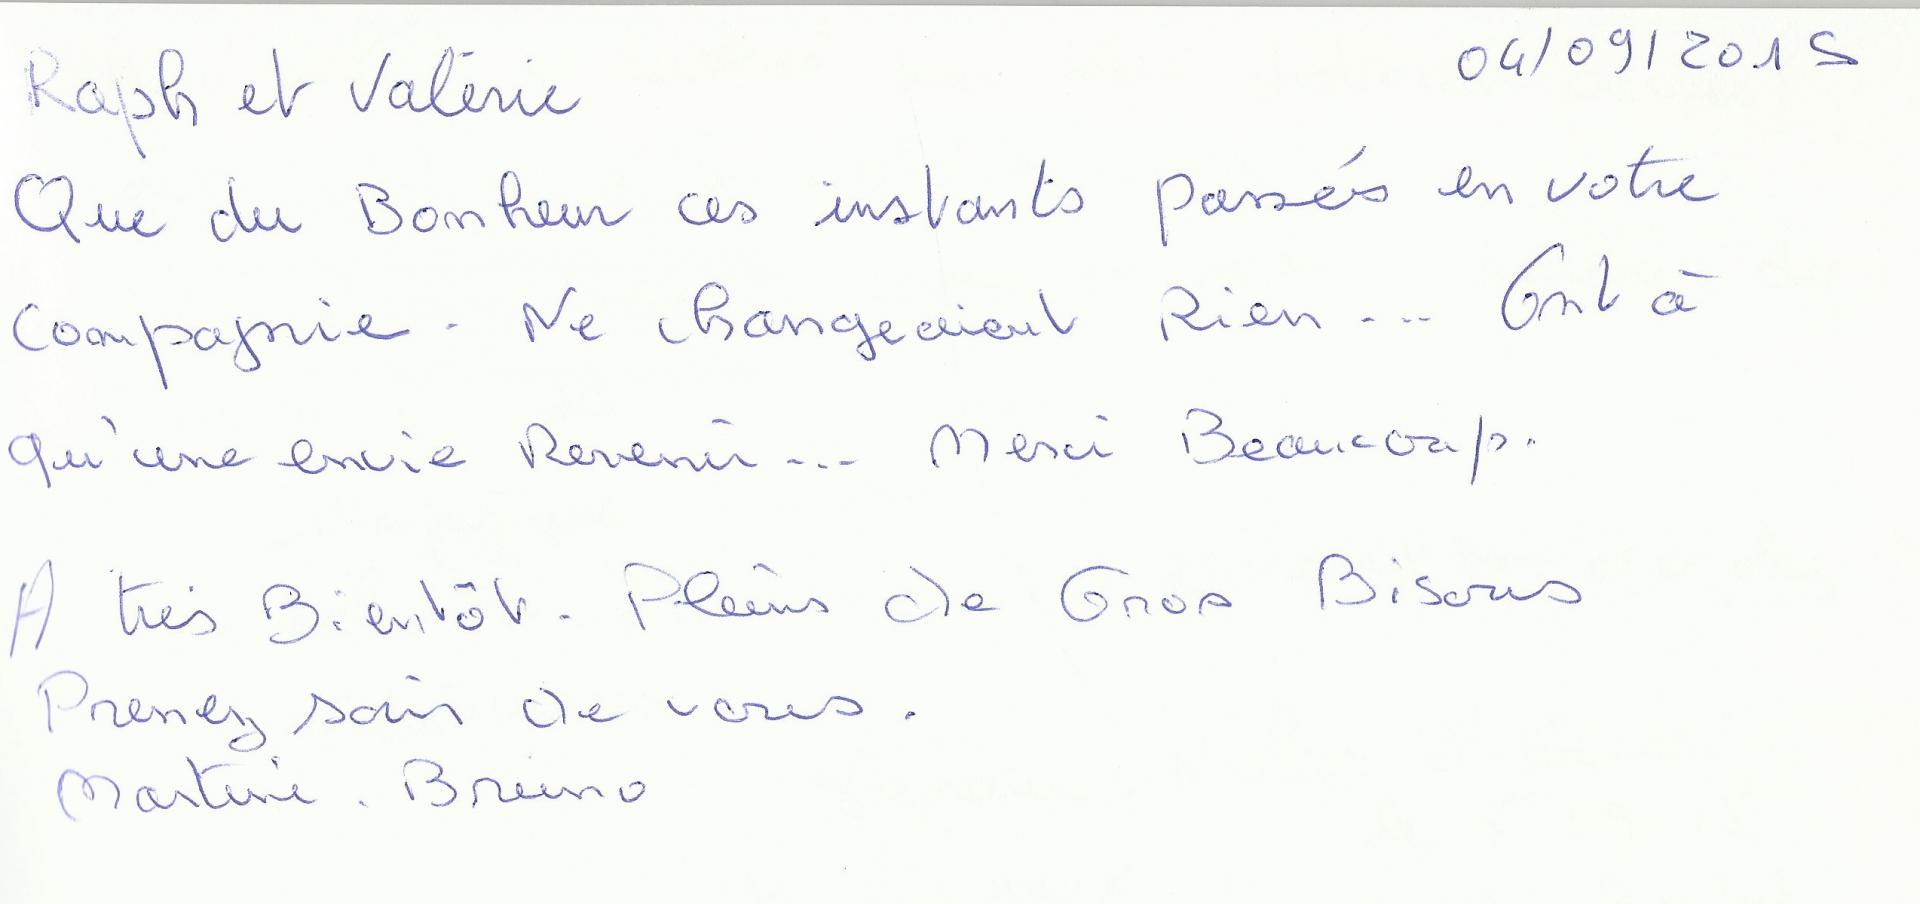 04/09/2015
Raph et Valérie
Que du Bonheur ces instants passés en votre
Compagnie. Ne changeaient Rien... Ont à
qu'une envie Revenir... Merci Beaucoup.
A très Bientôt. Pleins de Gros Bisous
Prenez soin de vous.
Martine. Bruno